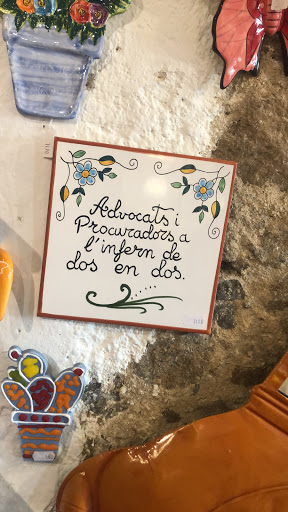 Advocats i
Procuradors, a
l'infern de
dos en dos.